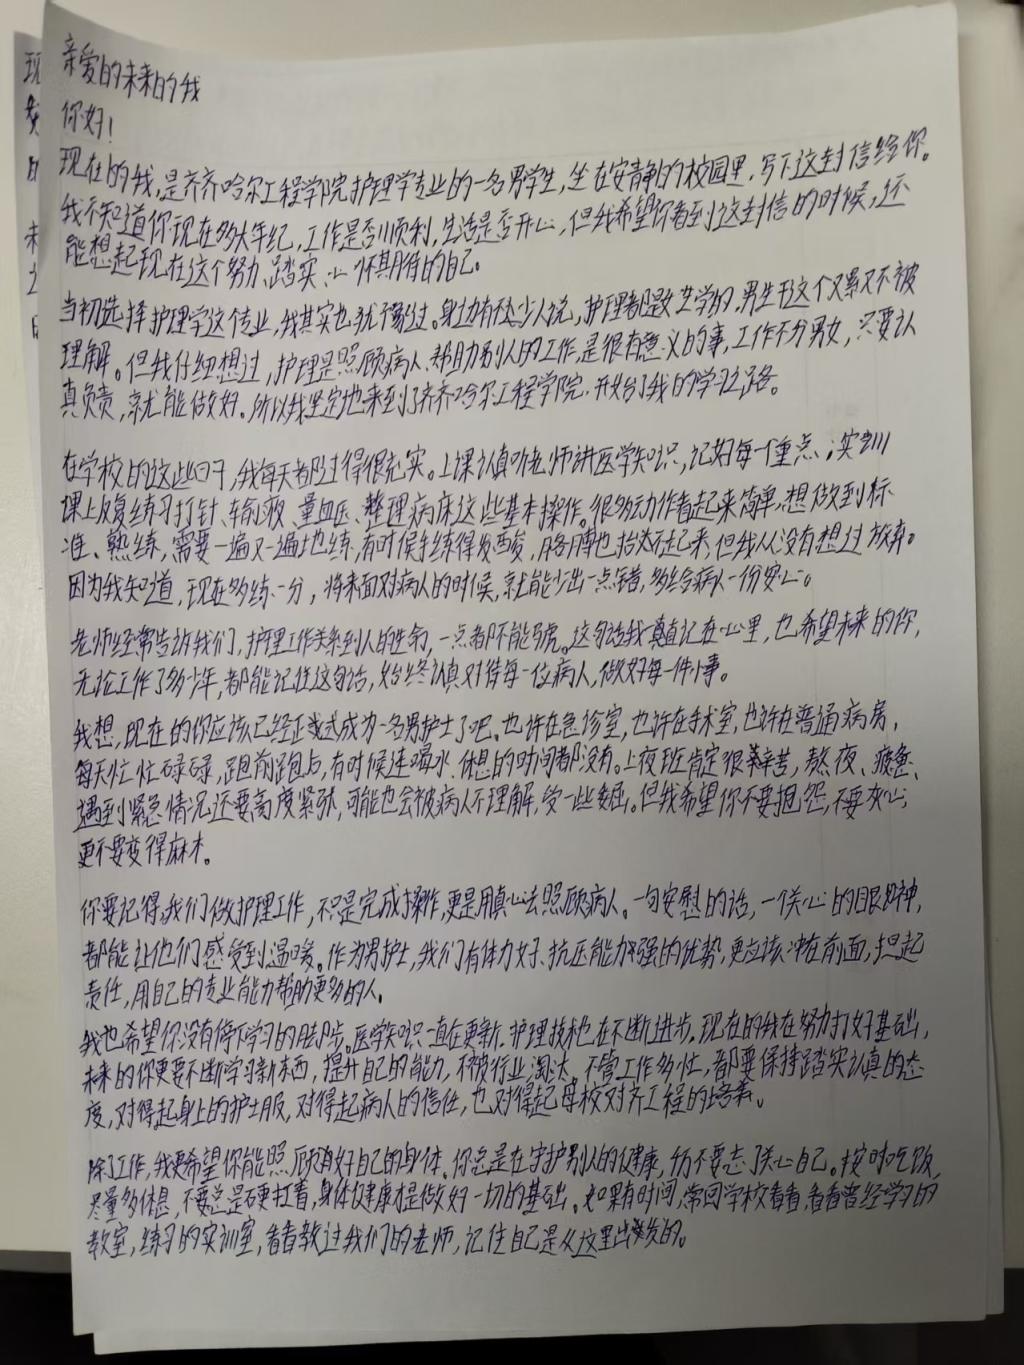 亲爱的未来的我
你好!
现在的我,是齐齐哈尔工程学院护理学专业的一名男学生,坐在安静的校园里,写下这封信给你。
我不知道你现在多大年纪,工作是否顺利,生活是否开心,但我希望你看到这封信的时候,还
能想起现在这个努力、踏实、心怀期待的自己。
当初选择护理学这个专业,我其实也犹豫过。身边有不少人说,护理都是女生学的,男生干这个又累又不被
理解。但我仔细想过,护理是照顾病人、帮助别人的工作,是很有意义的事,工作不分男女,只要认
真负责,就能做好。所以我坚定地来到了齐齐哈尔工程学院,开始了我的学习之路。
在学校的这些日子,我每天都过得很充实。上课认真听老师讲医学知识,记好每一个重点;实训
课上反复练习打针、输液、量血压、整理病床这些基本操作。很多动作看起来简单,想做到标
准、熟练,需要一遍又一遍地练,有时候手练得发酸,胳膊也抬不起来,但我从没有想过放弃。
因为我知道,现在多练一分,将来面对病人的时候,就能少出一点错,多给病人一份安心。
老师经常告诉我们,护理工作关系到人的生命,一点都不能马虎。这句话我一直记在心里,也希望未来的你,
无论工作了多少年,都能记住这句话,始终认真对待每一位病人,做好每一件小事。
我想,现在的你应该已经正式成为一名男护士了吧。也许在急诊室,也许在手术室,也许在普通病房,
每天忙忙碌碌,跑前跑后,有时候连喝水、休息的时间都没有。上夜班肯定很辛苦,熬夜、疲惫、
遇到紧急情况还要高度紧张,可能也会被病人不理解,受一些委屈。但我希望你不要抱怨,不要灰心,
更不要变得麻木。
你要记得,我们做护理工作,不只是完成操作,更是用真心去照顾病人。一句安慰的话,一个关心的眼神,
都能让他们感受到温暖。作为男护士,我们有体力好、抗压能力强的优势,更应该冲在前面,担起
责任,用自己的专业能力帮助更多的人。
我也希望你没有停下学习的脚步。医学知识一直在更新,护理技术也在不断进步。现在的我在努力打好基础,
未来的你更要不断学习新东西,提升自己的能力,不被行业淘汰。不管工作多忙,都要保持踏实认真的态
度,对得起身上的护士服,对得起病人的信任,也对得起母校对齐工程的培养。
除了工作,我更希望你能照顾好自己的身体。你总是在守护别人的健康,仍不要忘了关心自己。按时吃饭,
尽量多休息,不要总是硬扛着,身体健康才是做好一切的基础。如果有时间,常回学校看看,看看曾经学习的
教室,练习的实训室,看看教过我们的老师,记住自己是从这里出发的。